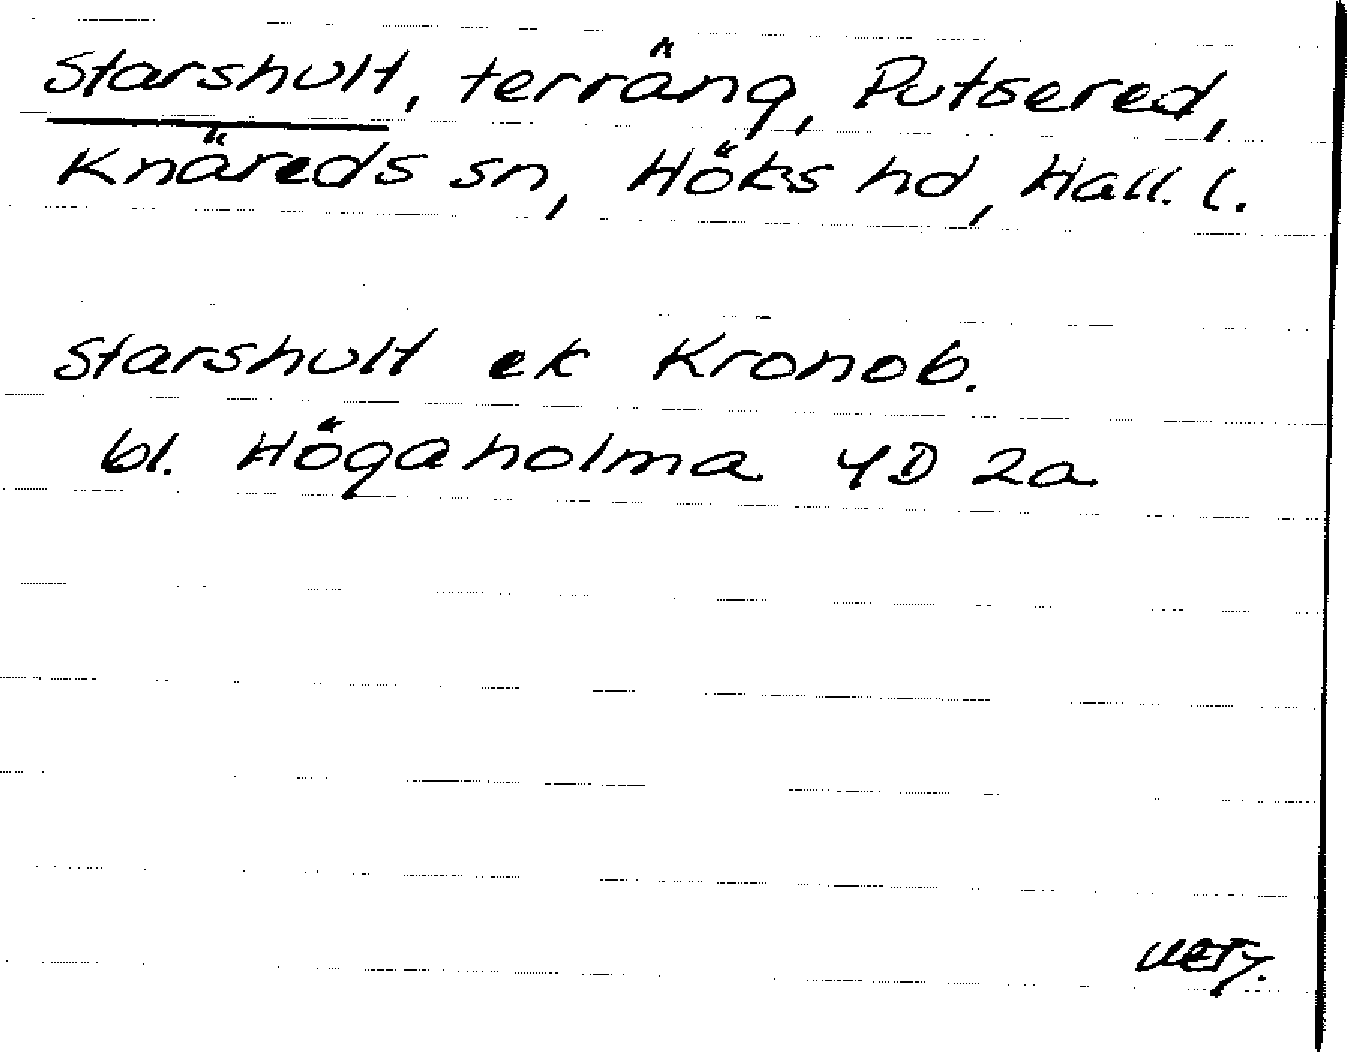 Starshult, terräng, Putsered,
Knäreds sn, Höks hd, Hall. l.
Starshult ek Kronob.
bl. Högaholma 4D 2a